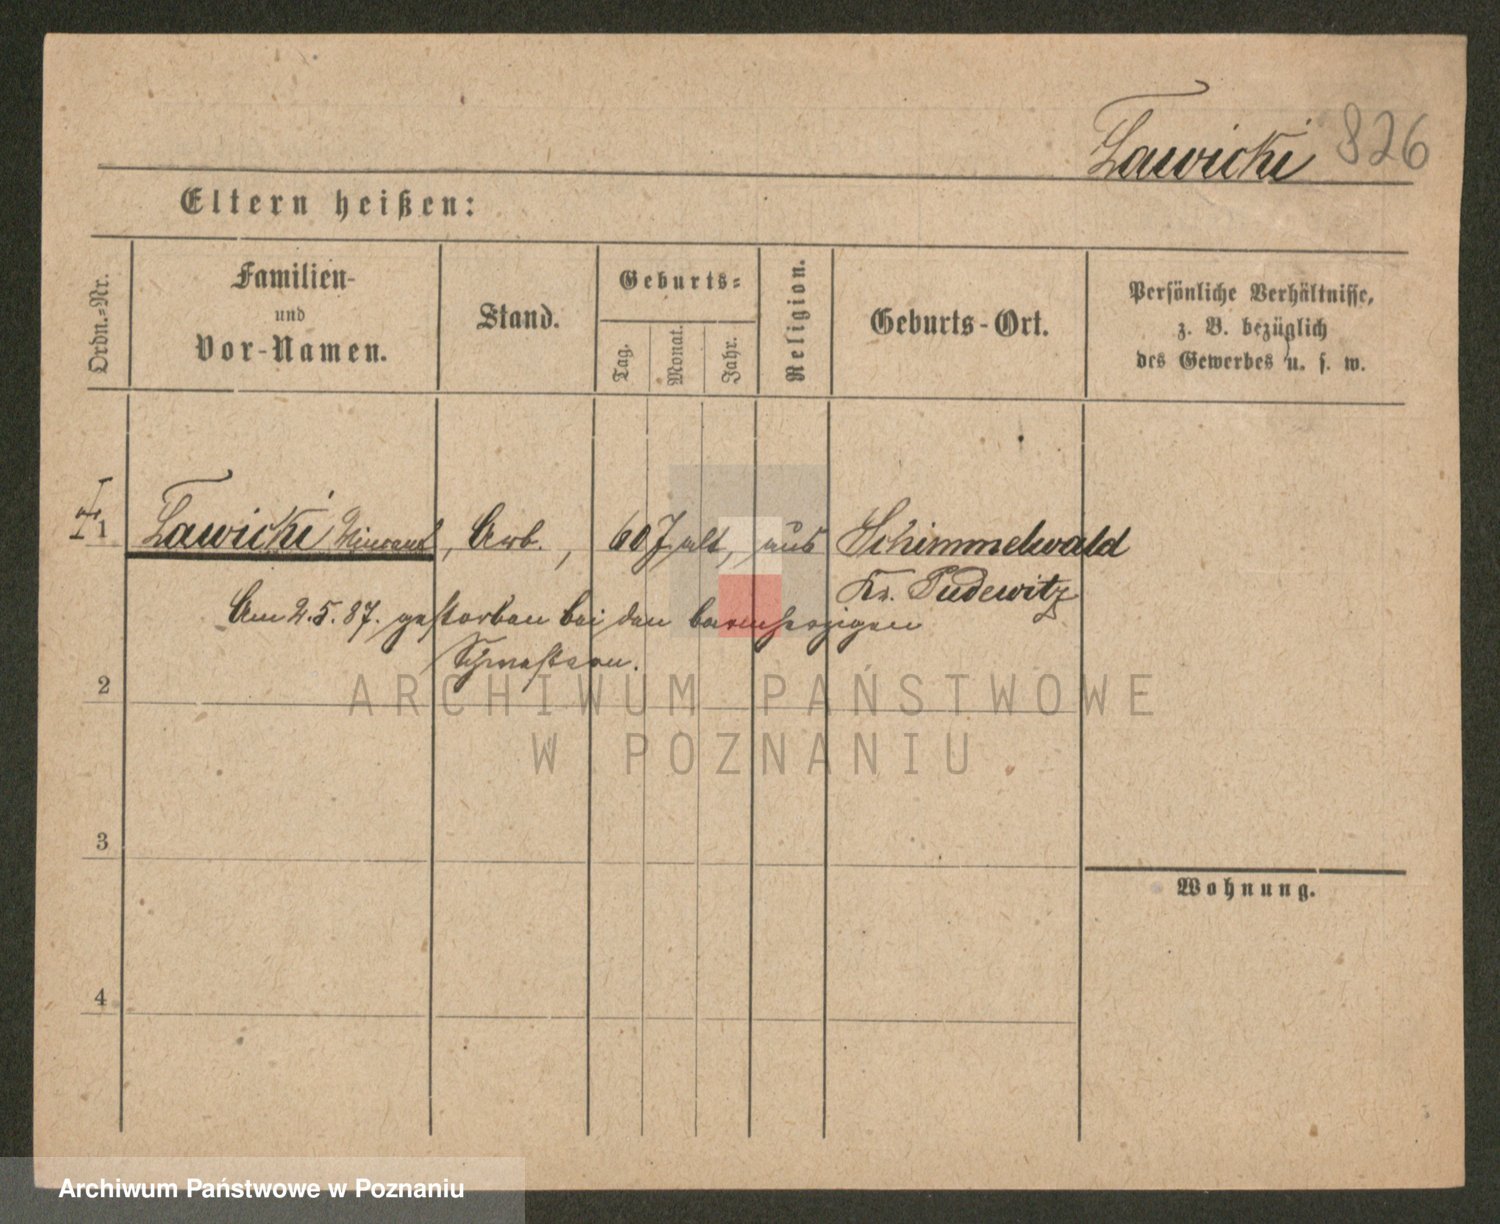 Ławicki 826
Eltern heißen:
Ordn.-Nr.
Familien-
und
Vor-Namen.
Stand.
Geburts-
Tag.
Monat.
Jahr.
Religion.
Geburts-Ort.
Persönliche Verhältnisse,
z. B. bezüglich
des Gewerbes u. s. w.
1 Ławicki Vincent, Arb., 60 J alt, aus Schimmelwald
Kr. Pudewitz
Am 2.5.87. gestorben bei den barmherzigen
Schwestern.
2
ARCHIWUM PAŃSTWOWE
W POZNANIU
3
Wohnung.
4
Archiwum Państwowe w Poznaniu